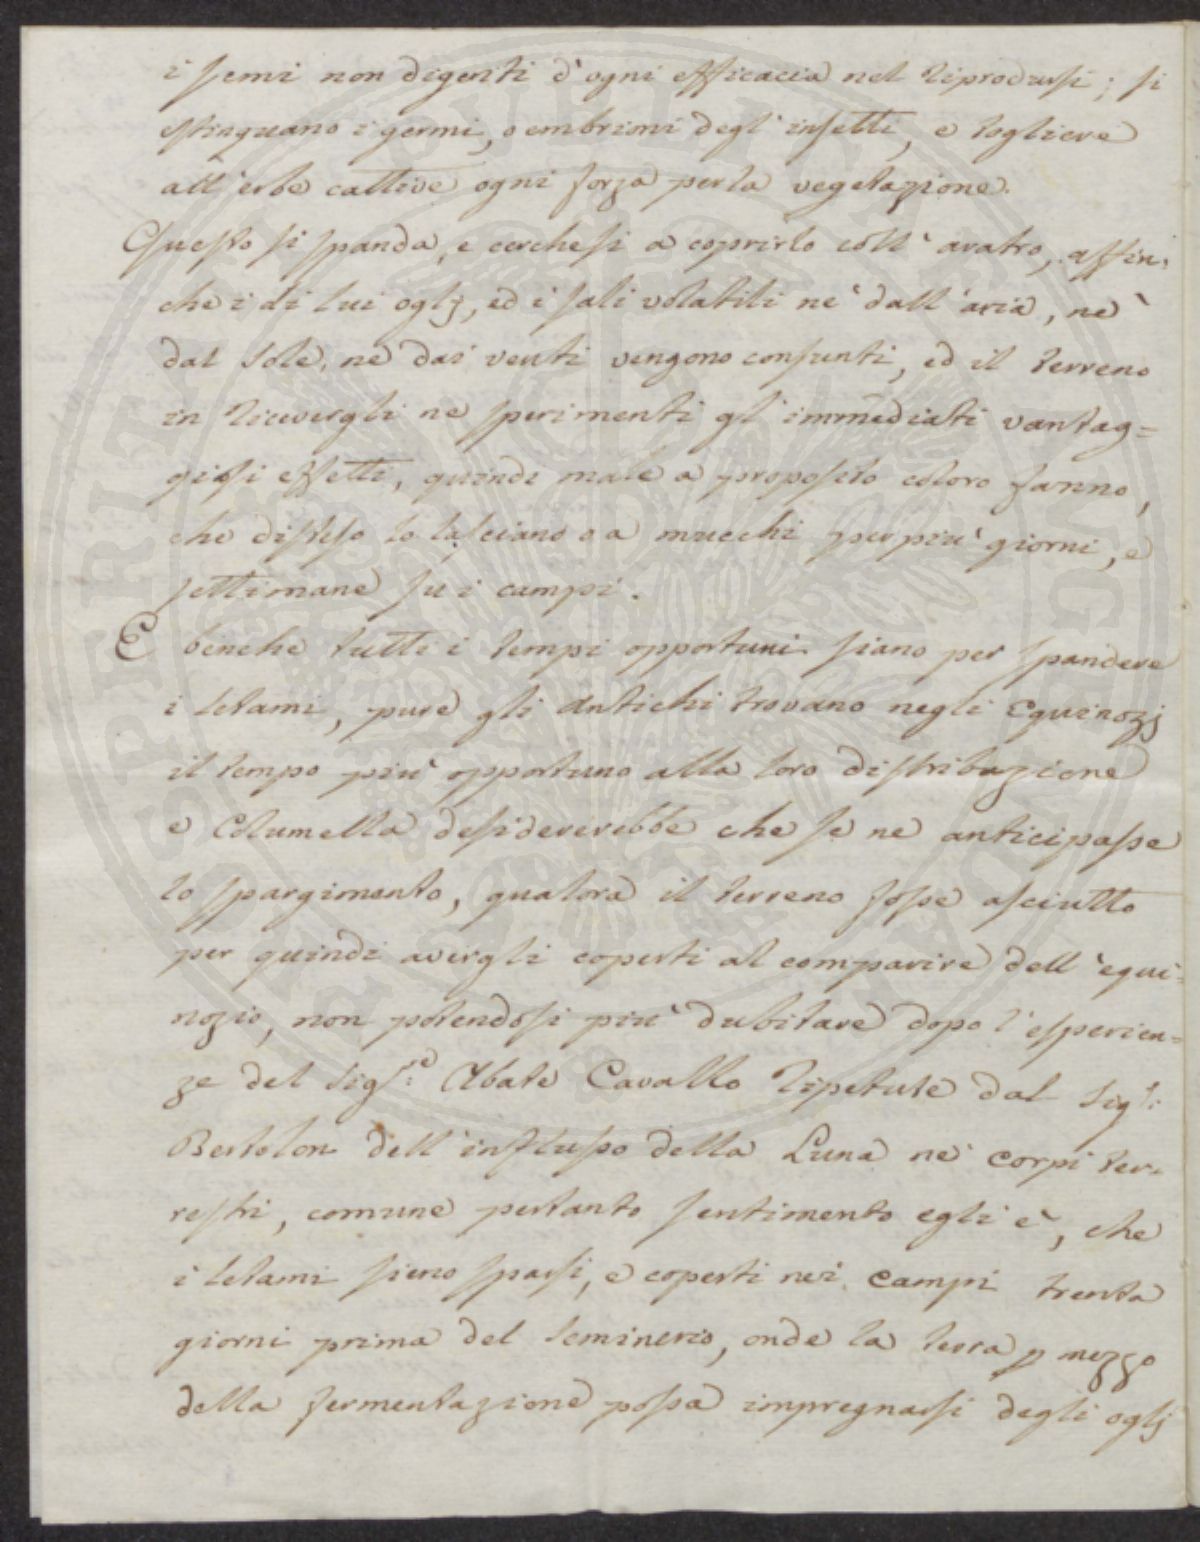 i semi non digeriti d'ogni efficacia nel riprodursi; si
estinguano i germi, o embrioni degl'insetti, e togliere
all'erbe cattive ogni forza per la vegetazione.
Questo si spanda, e cerchesi a coprirlo coll'aratro, affin-
che i di lui oglj, ed i sali volatili nè dall'aria, nè
dal Sole, nè dai venti vengono consunti, ed il terreno
in ricevergli ne sperimenti gl'immediati vantag=
giosi effetti, quindi male a proposito coloro fanno,
che disteso lo lasciano o a mucchi per più giorni, e
settimane su i campi.
E benche tutti i tempi opportuni siano per spandere
i letami, pure gli antichi trovano negli Equinozj
il tempo più opportuno alla loro distribuzione
e Columella desidererebbe che se ne anticipasse
lo spargimento, qualora il terreno fosse asciutto
per quindi avergli coperti al comparire dell'equi=
nozio, non potendosi più dubitare dopo l'esperien=
ze del Sig.re Abate Cavallo ripetute dal Sig.r
Bertolon dell'influsso della Luna ne' corpi ter-
restri, comune pertanto sentimento egli è, che
i letami sieno sparsi, e coperti nei campi trenta
giorni prima del seminerio, onde la terra p mezzo
della fermentazione possa impregnarsi degli oglj
SOSPERITATI CIVITAT AUGENDAE